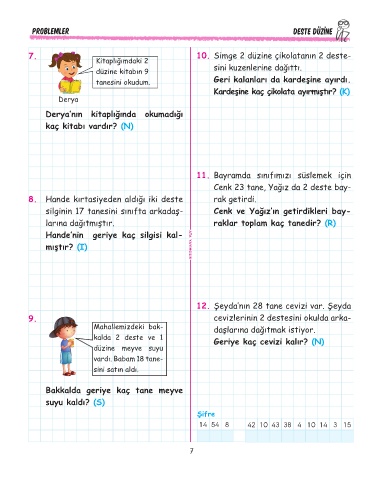 PROBLEMLER
DESTE DÜZİNE
7.
Kitaplığımdaki 2
düzine kitabın 9
tanesini okudum.
Derya
Derya'nın kitaplığında okumadığı
kaç kitabı vardır? (N)
8. Hande kırtasiyeden aldığı iki deste
silginin 17 tanesini sınıfta arkadaş-
larına dağıtmıştır.
Hande'nin geriye kaç silgisi kal-
mıştır? (I)
9.
Mahallemizdeki bak-
kalda 2 deste ve 1
düzine meyve suyu
vardı. Babam 18 tane-
sini satın aldı.
Bakkalda geriye kaç tane meyve
suyu kaldı? (S)
10. Simge 2 düzine çikolatanın 2 deste-
sini kuzenlerine dağıttı.
Geri kalanları da kardeşine ayırdı.
Kardeşine kaç çikolata ayırmıştır? (K)
11. Bayramda sınıfımızı süslemek için
Cenk 23 tane, Yağız da 2 deste bay-
rak getirdi.
Cenk ve Yağız'ın getirdikleri bay-
raklar toplam kaç tanedir? (R)
12. Şeyda'nın 28 tane cevizi var. Şeyda
cevizlerinin 2 destesini okulda arka-
daşlarına dağıtmak istiyor.
Geriye kaç cevizi kalır? (N)
Şifre
14 54 8 42 10 43 38 4 10 14 3 15
7